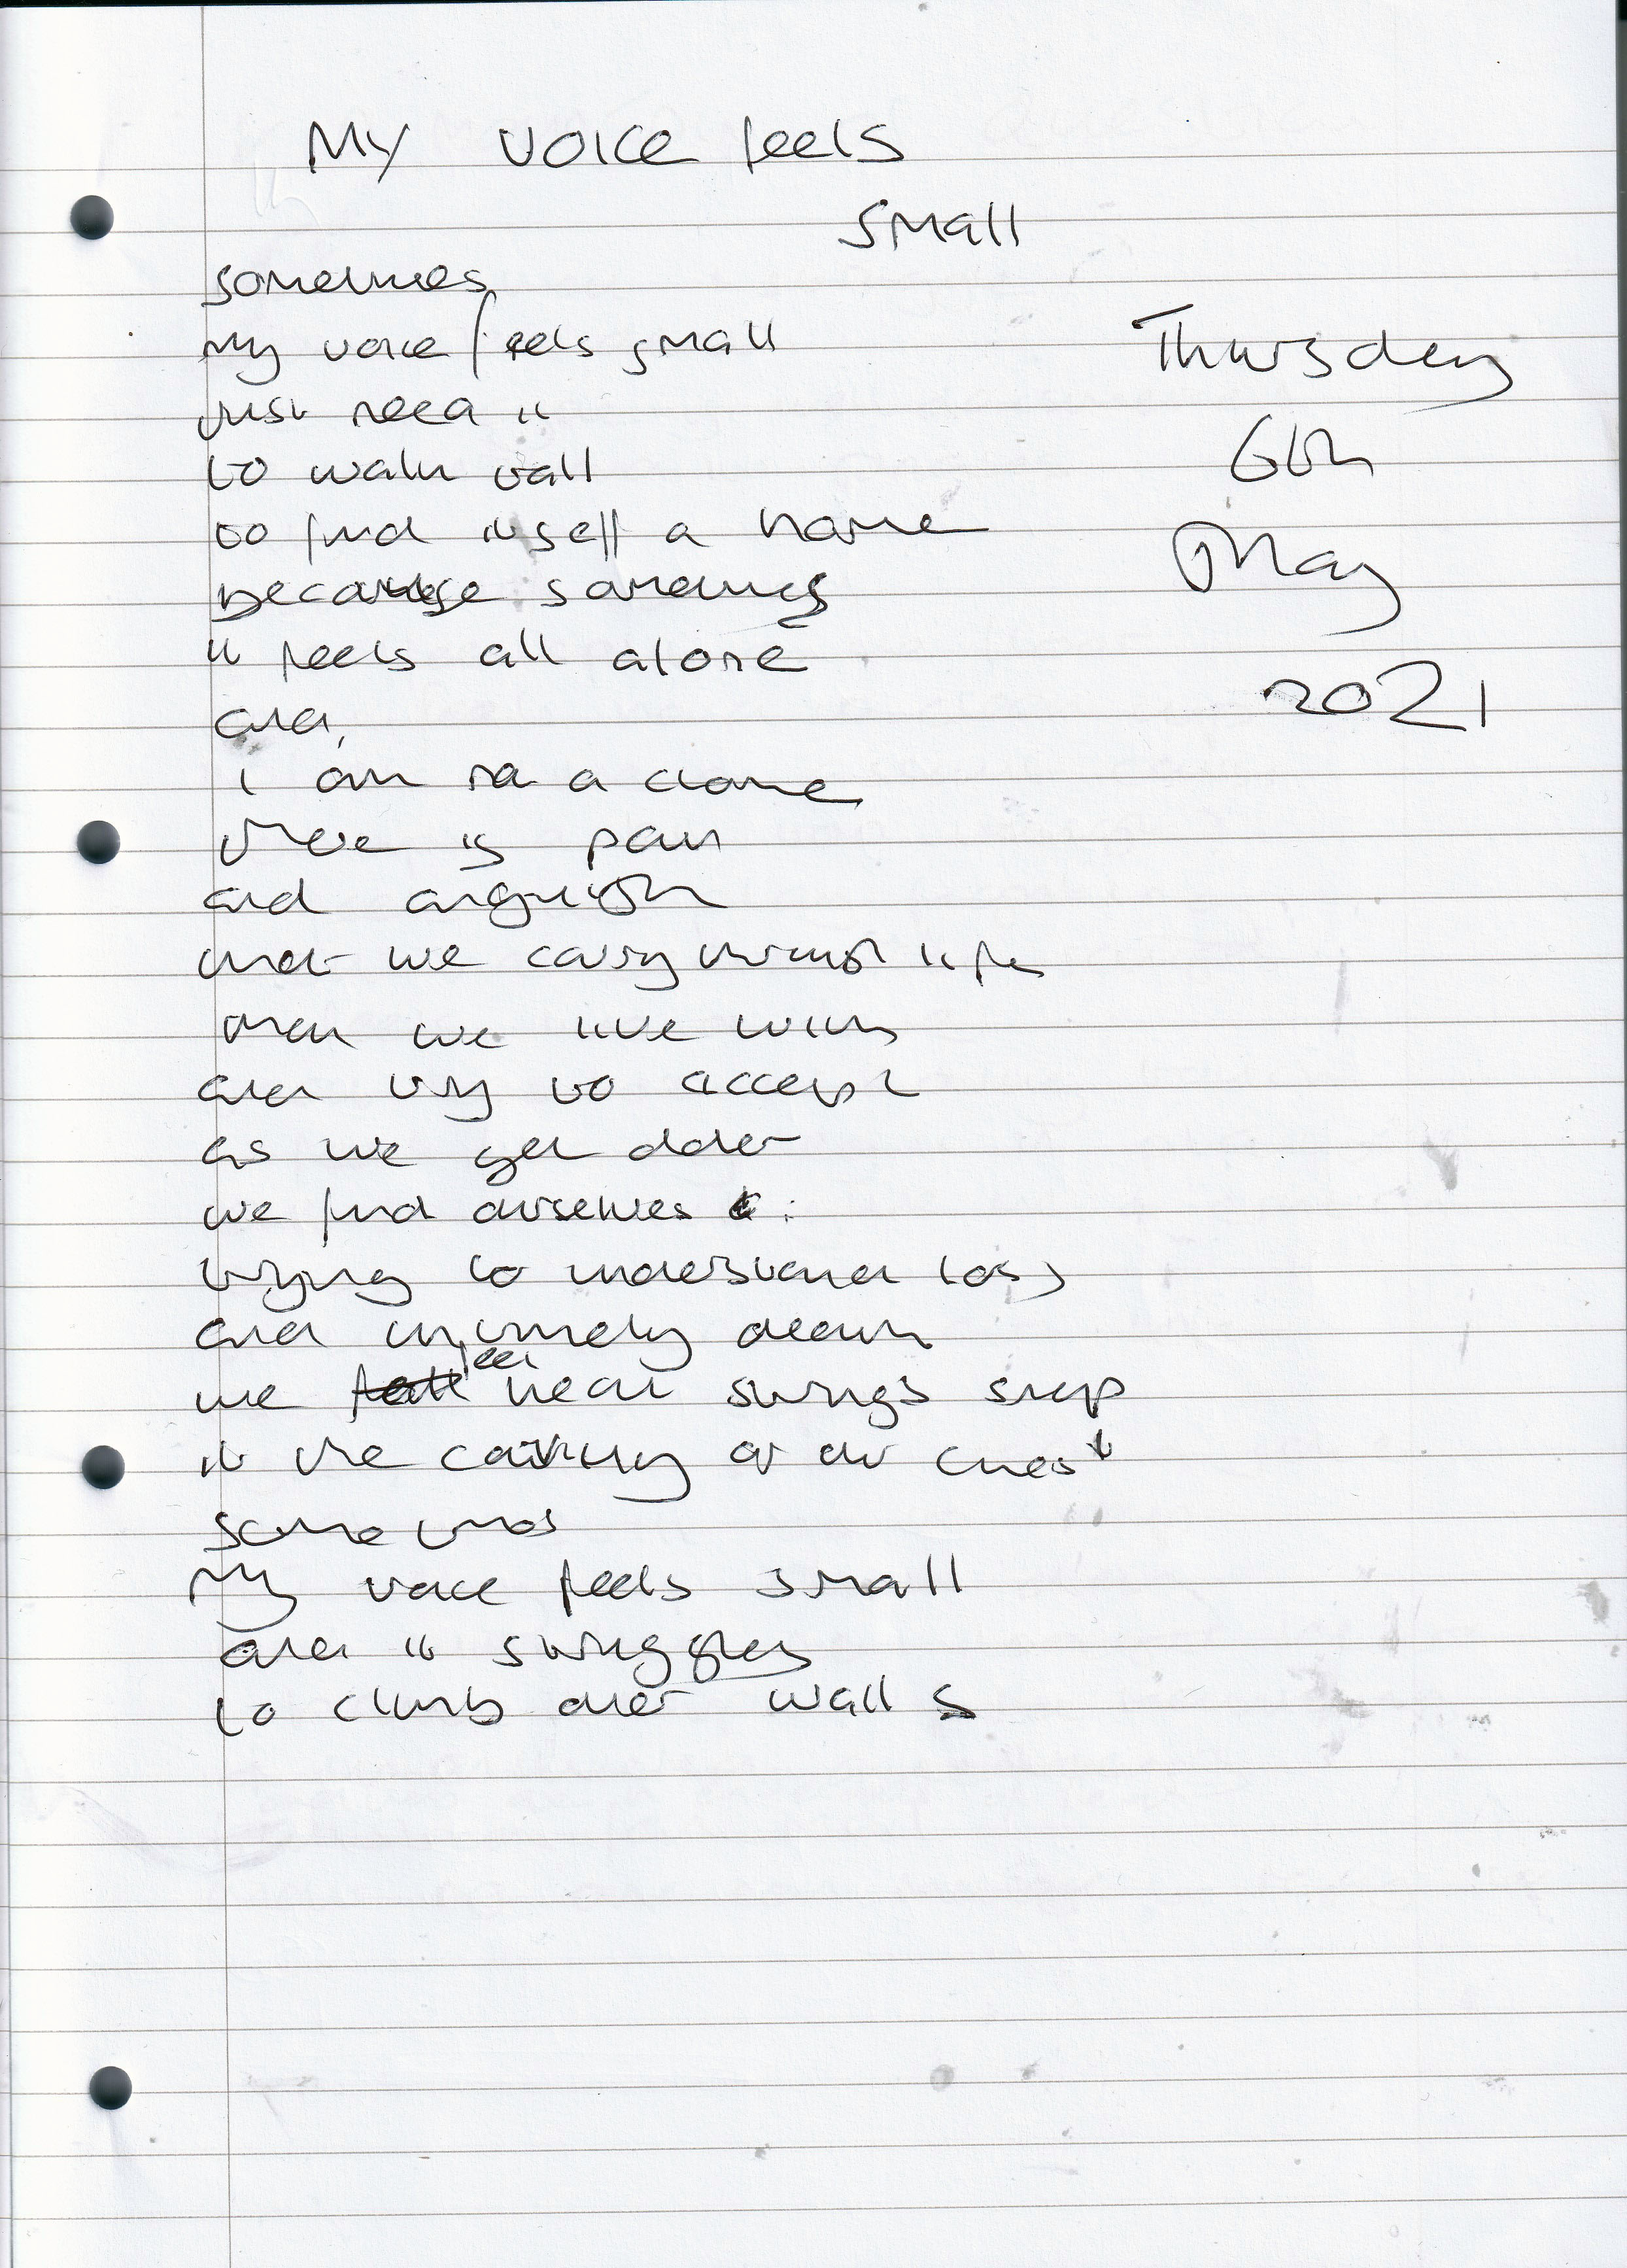 My voice feels
small
sometimes
my voice feels small
just need it
to walk tall
to find itself a home
because sometimes
it feels all alone
and,
i am not a clone
there is pain
and anguish
that we carry through life
that we live with
and try to accept
as we get older
we find ourselves
trying to understand loss
and untimely death
we feel heart strings snap
in the cavity of our chest
sometimes
my voice feels small
and it struggles
to climb over walls
Thursday
6th
May
2021